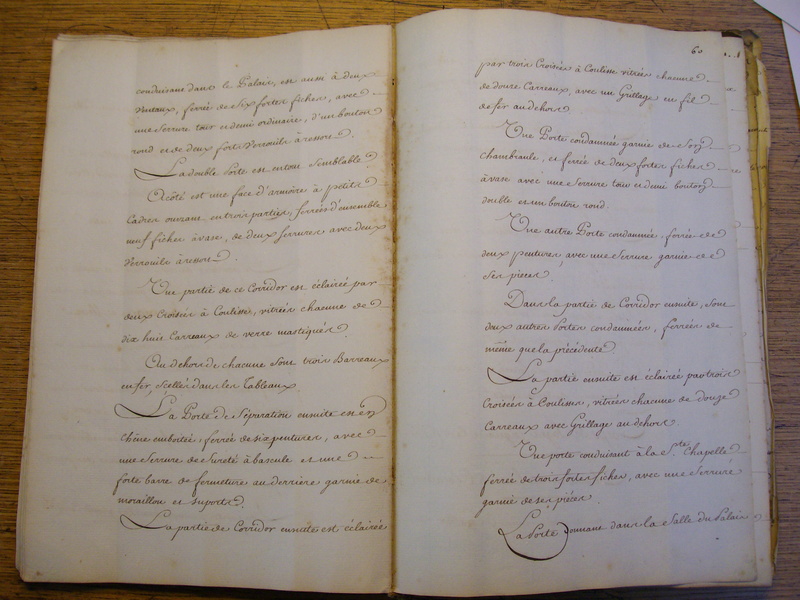 conduisant dans le Palais, est aussi à deux
Venteaux, ferrée de Six fortes fiches, avec
une Serrure tour et demi ordinaire, d'un bouton
rond et de deux forts Verrouils à ressort.
La double Porte est en tout Semblable
Acôté est une face d'armoire à petits
Cadres ouvrant en trois parties, ferrées d'ensemble
neuf fiches à vase, de deux serrures avec deux
Verrouils à ressort.
Une partie de ce Corridor est éclairée par
deux Croisées à Coulisses, vitrées chacune de
dix huit Carreaux de verre mastiqués
Au dehors de chacune Sont trois Barreaux
en fer, Scellés dans les Tableaux
La Porte de Séparation ensuite est en
chêne emboitée, ferrée de six pentures, avec
une Serrure de Sureté à bascule et une
forte barre de fermeture au derrière garnie de
moraillon et suports.
La partie de Corridor ensuite est éclairée
60
par trois Croisées à Coulisse vitrées chacune
de douze Carreaux, avec un Grillage en fil
de fer au dehors
Une Porte condamnée garnie de son
chambranle, et ferrée de deux fortes fiches
à vase avec une Serrure tour et demi bouton
double et un bouton rond.
Une autre Porte condamnée, ferrée de
deux pentures, avec une Serrure garnie de
Ses pieces
Dans la partie de Corridor ensuite, Sont
deux autres Portes condamnées, ferrées de
même que la précédente
La partie ensuite est éclairée par trois
Croisées à Coulisses, vitrées chacune de douze
Carreaux avec Grillage au dehors.
Une porte conduisant à la Ste. Chapelle
ferrée de trois fortes fiches, avec une Serrure
garnie de ses pieces.
La Porte donnant dans la Salle du Palais